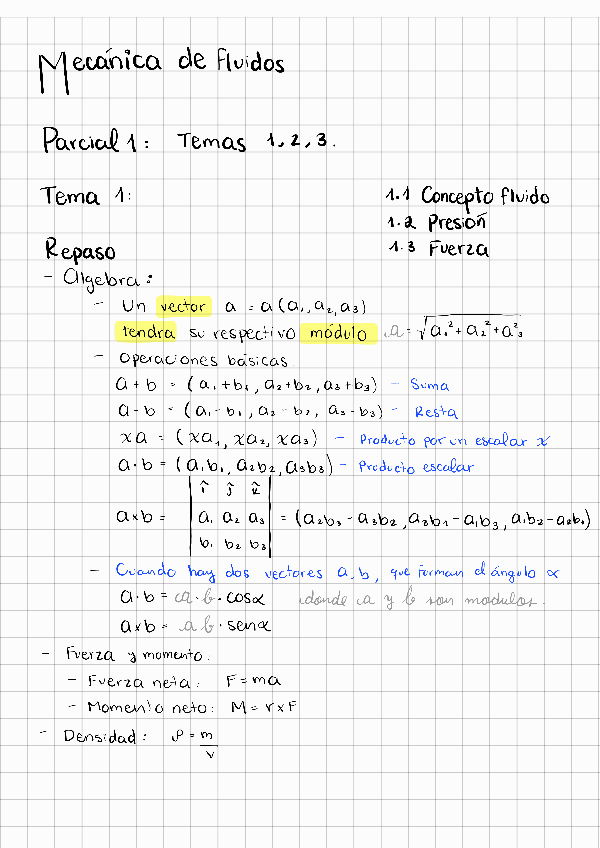 Mecánica de Fluidos
Parcial 1: Temas 1, 2, 3.
Tema 1:
1.1 Concepto fluido
1.2 Presión
1.3 Fuerza
Repaso
- Algebra:
- Un vector a = a(a₁, a₂, a₃)
tendra su respectivo módulo a = √a₁² + a₂² + a₃²
- Operaciones básicas
a + b = (a₁+b₁, a₂+b₂, a₃+b₃) - Suma
a - b = (a₁-b₁, a₂-b₂, a₃-b₃) - Resta
xa = (xa₁, xa₂, xa₃) - Producto por un escalar x
a·b = (a₁b₁, a₂b₂, a₃b₃) - Producto escalar
î ĵ k̂
a×b = | a₁ a₂ a₃ | = (a₂b₃ - a₃b₂, a₃b₁ - a₁b₃, a₁b₂ - a₂b₁)
b₁ b₂ b₃
- Cuando hay dos vectores a, b, que forman el ángulo α
a·b = a·b·cosα donde a y b son modulos.
a×b = a b·senα
- Fuerza y momento.
- Fuerza neta: F = ma
- Momento neto: M = r×F
- Densidad: ρ = m/v